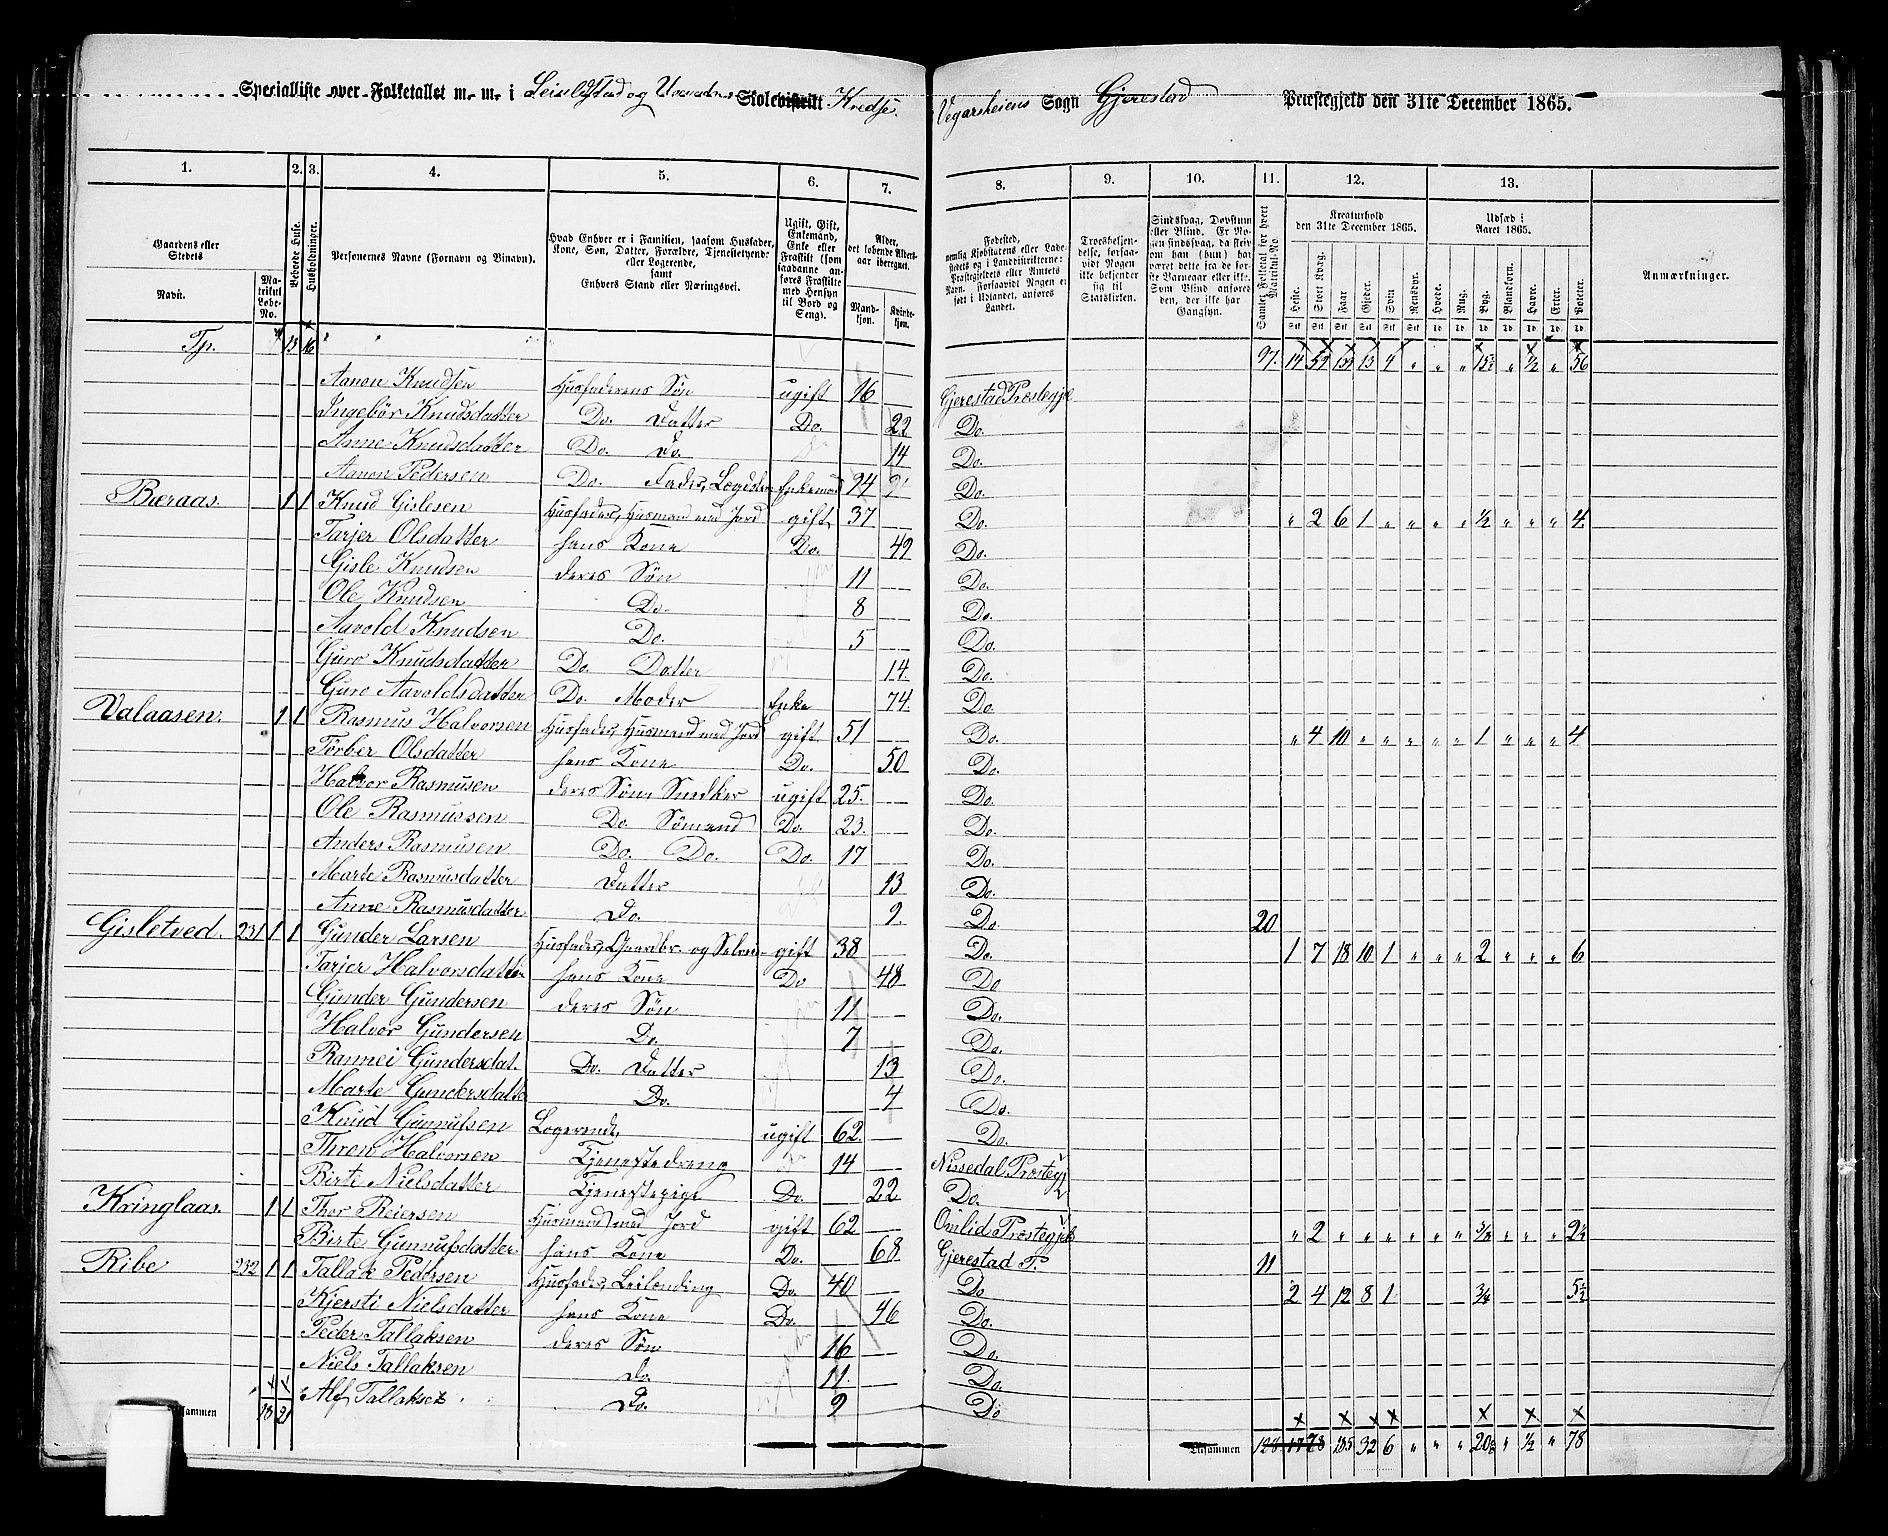 Specialliste over Folketallet m. m. i Skoledistrikt Kredse. Vegarsheiens Sogn Gjerestad Præstegjeld den 31te December 1865.
1. 2. 3. 4. 5. 6. 7. 8. 9. 10. 11. 12. 13.
Gaardens eller Stedets Navn.
Matrikul Løbe-No.
Beboede Huse.
Husholdninger.
Personernes Navne (Fornavn og Binavn).
Hvad Enhver er i Familien, saasom Husfader, Kone, Søn, Datter, Forældre, Tjenestetyende eller Logerende, samt Enhvers Stand eller Næringsvei.
Ugift, Gift, Enkemand, Enke eller Fraskilt (som saadanne anføres Fraskilte med Hensyn til Bord og Seng).
Alder, det løbende Aldersaar iberegnet.
Mandkjøn. Kvindekjøn.
Fødested, nemlig Kjøbstadens eller Ladestedets og i Landdistrikterne: Præstegjeldets eller Amtets Navn. Forsaavidt Nogen er født i Udlandet, anføres Landet.
Troesbekjendelse, forsaavidt Nogen ikke bekjender sig til Statskirken.
Sindssvag, Døvstum eller Blind. Er Nogen sindssvag, da skrives om han (hun) har været dette fra de første Barneaar eller ikke. Som Blind anføres den, der ikke har Gangsyn.
Samlet Folketal for hvert Matrikul-No.
Kreaturhold den 31te December 1865.
Heste. Stort Kvæg. Faar. Gjeder. Svin. Rensdyr.
Udsæd i Aaret 1865.
Hvede. Rug. Byg. Blandkorn. Havre. Erter. Poteter.
Anmærkninger.
Tp. 13 16 14 59 13 4 " " " " ½ " 56
Aanon Knudsen Husfaderens Søn ugift 16 Gjerestad Præstegjl
Ingebör Knudsdatter Do. Datter Do. 22 Do.
Anne Knudsdatter Do. Do. 14 Do.
Aanon Pedersen Do. Fader, Enkemand 94 Do.
Bieraas. 1 1 Knud Gislesen Husfader, Husmand med Jord gift 37 Do. " 2 6 1 " " " " ½ " " " 4
Tarjer Olsdatter hans Kone Do. 49 Do.
Gisle Knudsen deres Søn 11 Do.
Ole Knudsen Do. 8 Do.
Aavold Knudsen Do. 5 Do.
Guro Knudsdatter Do. Datter 14. Do.
Guro Aavoldsdatter Do. Moder Enke 74. Do.
Valaasen. 1 1 Rasmus Halvorsen Husfader, Husmand med Jord gift 51 Do. " 4 10 " " " " " 1 " " " 4
Torber Olsdatter hans Kone Do. 50 Do.
Halvor Rasmusen deres Søn, Snedker ugift 25. Do.
Ole Rasmussen Do. Sömand Do. 23. Do.
Anders Rasmusen Do. Do. Do. 17 Do.
Marte Rasmusdatter Datter 13 Do.
Anne Rasmusdatter Do. 9. Do. 20
Gisletved. 231 1 1 Gunder Larsen Husfader, Gaardbr. og Selveier gift 38 Do. 1 7 18 10 1 " " " 2 " " " 6
Tarjer Halvorsdatter hans Kone Do 48 Do
Gunder Gundersen deres Søn 11 Do.
Halvor Gundersen Do. 7 Do.
Rannei Gundersdat. Do. Datter 13 Do.
Marte Gundersdatte Do. 4 Do.
Knud Gunnufsen Logerende, ugift 62. Do.
Halvorsen Tjenestedreng 14 Nissedal Præstegj
Birte Nielsdatter Tjenestepige Do. 22 Do.
Kringlaas. 1 1 Thor Reiersen Husmand med Jord gift 62 Omlid Præstegjeld " 2 " " " " " " ¾ " " " 2½
Birte Gunnufsdatter hans Kone Do. 68 Gjerestad P. 11
Ribe 232 1 1 Tallak Pedersen Husfader, Leilending Do. 40 Do 2 4 12 8 1 ¾ 5½
Kjersti Nielsdatter hans Kone Do. 46 Do.
Peder Tallaksen deres Søn 16 Do.
Niels Tallaksen Do. 11. Do.
Alf Tallaksen Do. 9 Do
Tilsammen 18 21 Tilsammen 128 17 78 185 32 6 " " " " ½ " 78